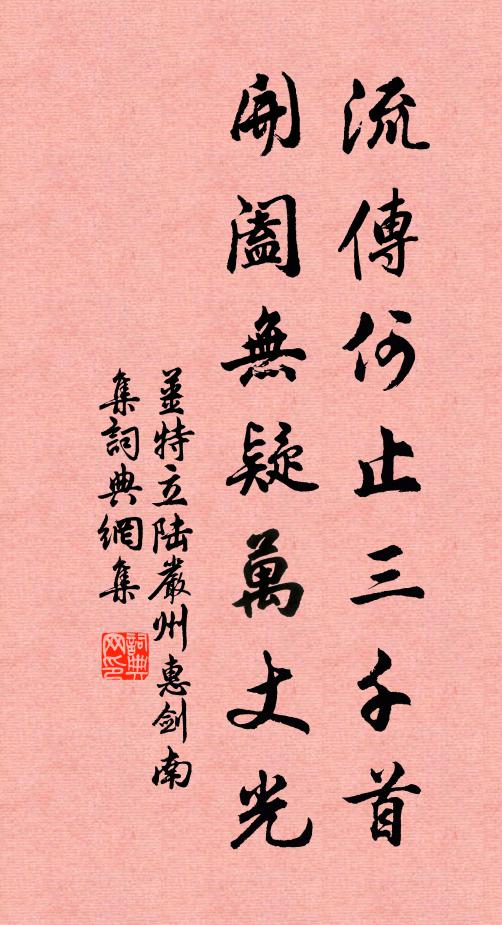 流傳何止三千首
開闔無疑萬丈光
薑特立陸嚴州惠劍南
集詞典網集
詞典
网印